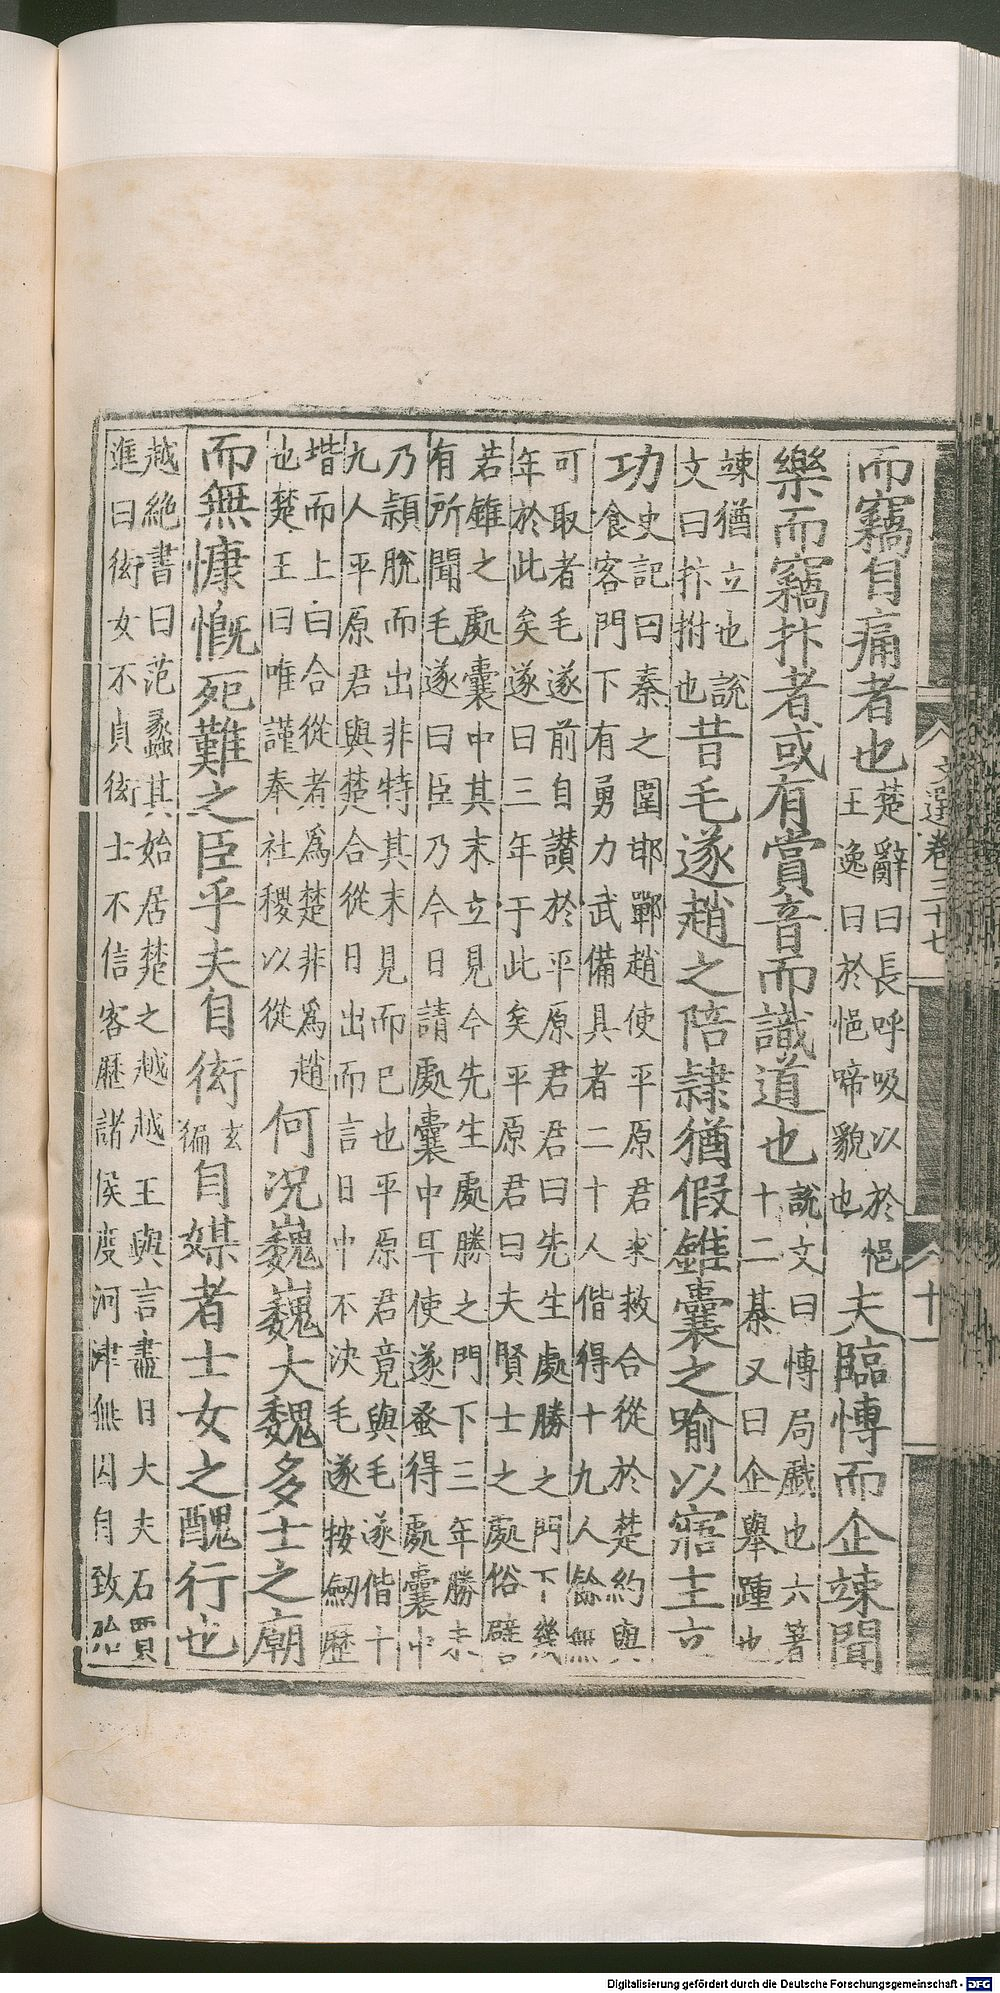 文選卷三十七
十
而竊自痛者也
楚辭曰長呼吸以於悒
王逸曰於悒啼貌也
夫臨博而企竦聞
樂而竊抃者或有賞音而識道也
說文曰博局戲也六著
十二棊又曰企舉踵也
竦猶立也說
文曰抃拊也
昔毛遂趙之陪隸猶假錐囊之喻以寤主立
功
史記曰秦之圍邯鄲趙使平原君求救合從於楚約與
食客門下有勇力武備具者二十人偕得十九人餘無
可取者毛遂前自讃於平原君君曰先生處勝之門下幾
年於此矣遂曰三年于此矣平原君曰夫賢士之處俗譬
若錐之處囊中其末立見今先生處勝之門下三年勝未
有所聞毛遂曰臣乃今日請處囊中耳使遂蚤得處囊中
乃穎脫而出非特其末見而已也平原君竟與毛遂偕十
九人平原君與楚合從日出而言日中不決毛遂按劒歷
堦而上白合從者爲楚非爲趙
也楚王曰唯謹奉社稷以從
何況巍巍大魏多士之廟
而無慷慨死難之臣乎夫自衒
玄
徧
自媒者士女之醜行也
越絶書曰范蠡其始居楚之越越王與言盡日大夫石賈
進曰衒女不貞衒士不信客歷諸侯度河津無因自致殆
Digitalisierung gefördert durch die Deutsche Forschungsgemeinschaft - DFG